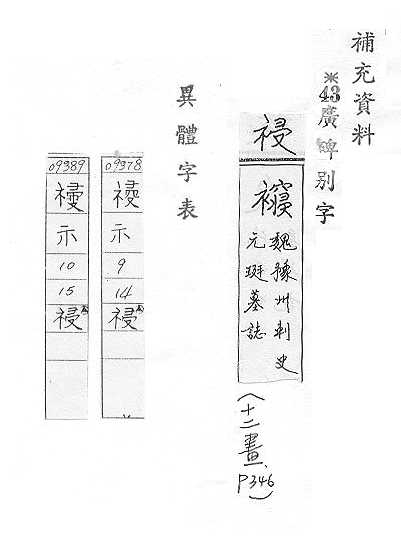 補充資料
※43廣碑別字
祲
魏豫州刺史
元珽墓誌
(十二畫、P346)
異體字表
09378
示
9
14
祲
09389
示
10
15
祲